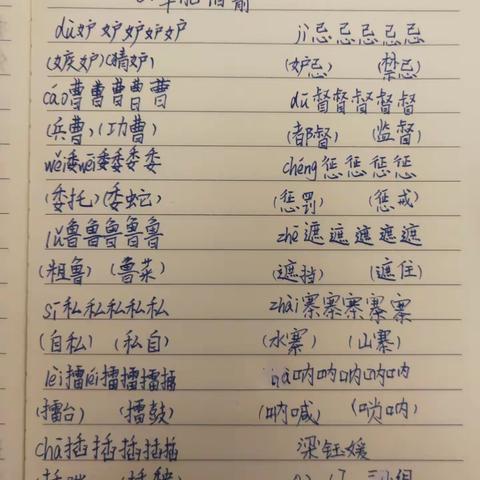 dù妒妒妒妒妒 jì忌忌忌忌忌
(嫉妒)(猜妒) (妒忌) (禁忌)
cáo曹曹曹曹曹 dū督督督督督
(兵曹)(功曹) (都督) (监督)
wěi委wēi委委委委 chéng惩惩惩惩
(委托)(委蛇) (惩罚) (惩戒)
lǔ鲁鲁鲁鲁鲁 zhē遮遮遮遮遮
(粗鲁) (鲁菜) (遮挡) (遮住)
sī私私私私私 zhài寨寨寨寨寨
(自私) (私自) (水寨) (山寨)
lèi擂léi擂擂擂擂 nà呐呐呐呐呐
(擂台) (擂鼓) (呐喊) (唢呐)
chā插插插插插 梁钰媛